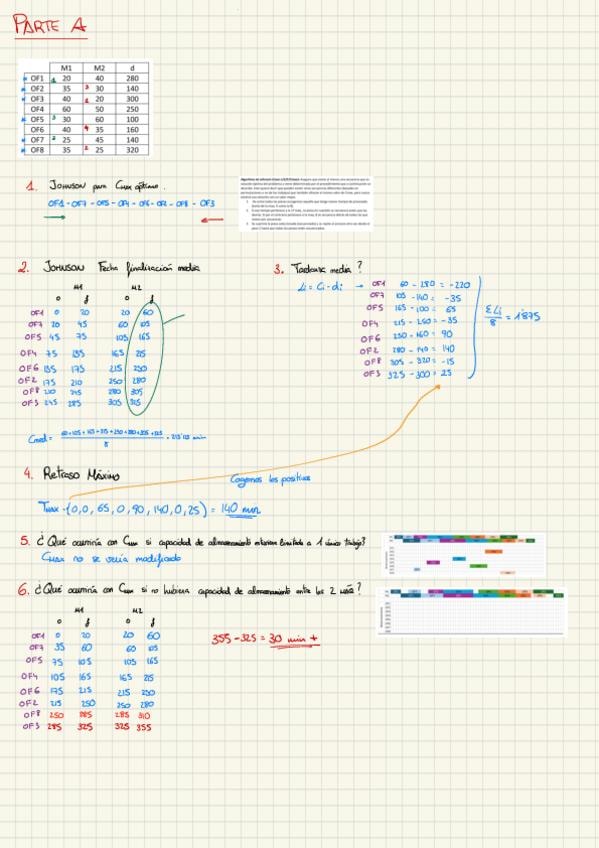 PARTE A
M1 M2 d
OF1 20 40 280
OF2 35 30 140
OF3 40 20 300
OF4 60 50 250
OF5 30 60 100
OF6 40 35 160
OF7 25 45 140
OF8 35 25 320
1. JOHNSON para Cmax óptimo.
OF1 - OF7 - OF5 - OF4 - OF6 - OF2 - OF8 - OF3
2. JOHNSON Fecha finalización media
M1 M2
0 f 0 f
OF1 0 20 20 60
OF7 20 45 60 105
OF5 45 75 105 165
OF4 75 135 165 215
OF6 135 175 215 250
OF2 175 210 250 280
OF8 210 245 280 305
OF3 245 285 305 325
Cmed = 60+105+165+215+250+280+305+325
8
3. Tardanza media?
Li = Ci - di
OF1 60 - 280 = -220
OF7 105 - 140 = -35
OF5 165 - 100 = 65
OF4 215 - 250 = -35
OF6 250 - 160 = 90
OF2 280 - 140 = 140
OF8 305 - 320 = -15
OF3 325 - 300 = 25
ΣLi
8
= 1'875
4. Retraso Máximo
Cogemos los positivos
Tmax = (0, 0, 65, 0, 90, 140, 0, 25) = 140 min
5. ¿Qué ocurriría con Cmax si capacidad de almacenamiento estuviera limitada a 1 único trabajo?
Cmax no se vería modificado
6. ¿Qué ocurriría con Cmax si no hubiera capacidad de almacenamiento entre las 2 máq?
M1 M2
0 f 0 f
OF1 0 20 20 60
OF7 35 60 60 105
OF5 75 105 105 165
OF4 105 165 165 215
OF6 175 215 215 250
OF2 215 250 250 280
OF8 250 285 285 310
OF3 285 325 325 355
355 - 325 = 30 min +